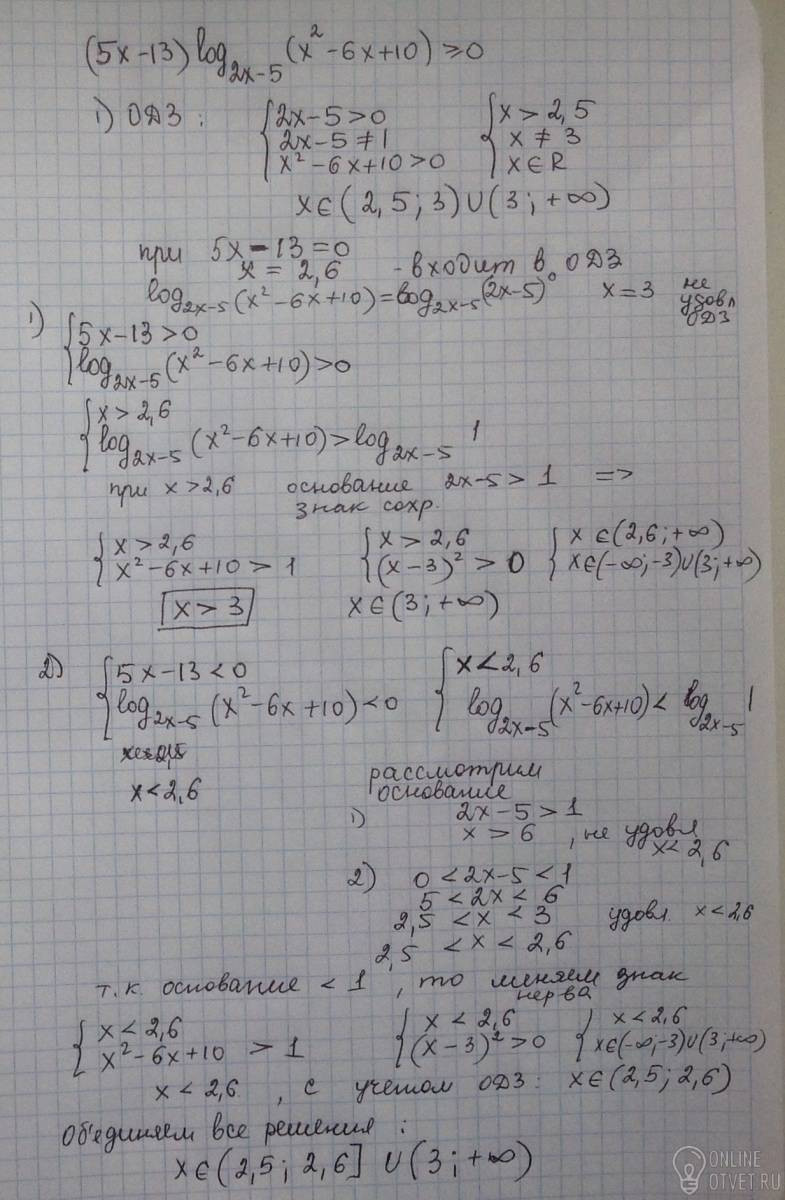 (5x-13) log₂ₓ₋₅ (x²-6x+10) ≥ 0
1) ОДЗ: { 2x-5>0 { x > 2,5
2x-5≠1 x ≠ 3
x²-6x+10>0 x∈R
x∈(2,5; 3)∪(3; +∞)
при 5x-13=0
x = 2,6 - входит в ОДЗ
log₂ₓ₋₅(x²-6x+10)=log₂ₓ₋₅(2x-5)⁰ x=3 не удовл ОДЗ
1) { 5x-13>0
log₂ₓ₋₅(x²-6x+10)>0
{ x>2,6
log₂ₓ₋₅(x²-6x+10)>log₂ₓ₋₅ 1
при x>2,6 основание 2x-5>1 =>
знак сохр.
{ x>2,6 { x>2,6 { x∈(2,6;+∞)
x²-6x+10>1 (x-3)²>0 x∈(-∞;-3)∪(3;+∞)
x>3 x∈(3;+∞)
2) { 5x-13<0 { x<2,6
log₂ₓ₋₅(x²-6x+10)<0 log₂ₓ₋₅(x²-6x+10)<log₂ₓ₋₅ 1
x<2,6
рассмотрим
основание
1) 2x-5>1
x>6, не удовл
x<2,6
2) 0<2x-5<1
5<2x<6
2,5<x<3 удовл. x<2,6
2,5<x<2,6
т.к. основание <1, то меняем знак
нер-ва
{ x<2,6 { x<2,6 { x<2,6
x²-6x+10>1 (x-3)²>0 x∈(-∞;-3)∪(3;+∞)
x<2,6, с учетом ОДЗ: x∈(2,5; 2,6)
Объединяем все решения:
x∈(2,5; 2,6] ∪ (3; +∞)
ONLINE
OTVET.RU